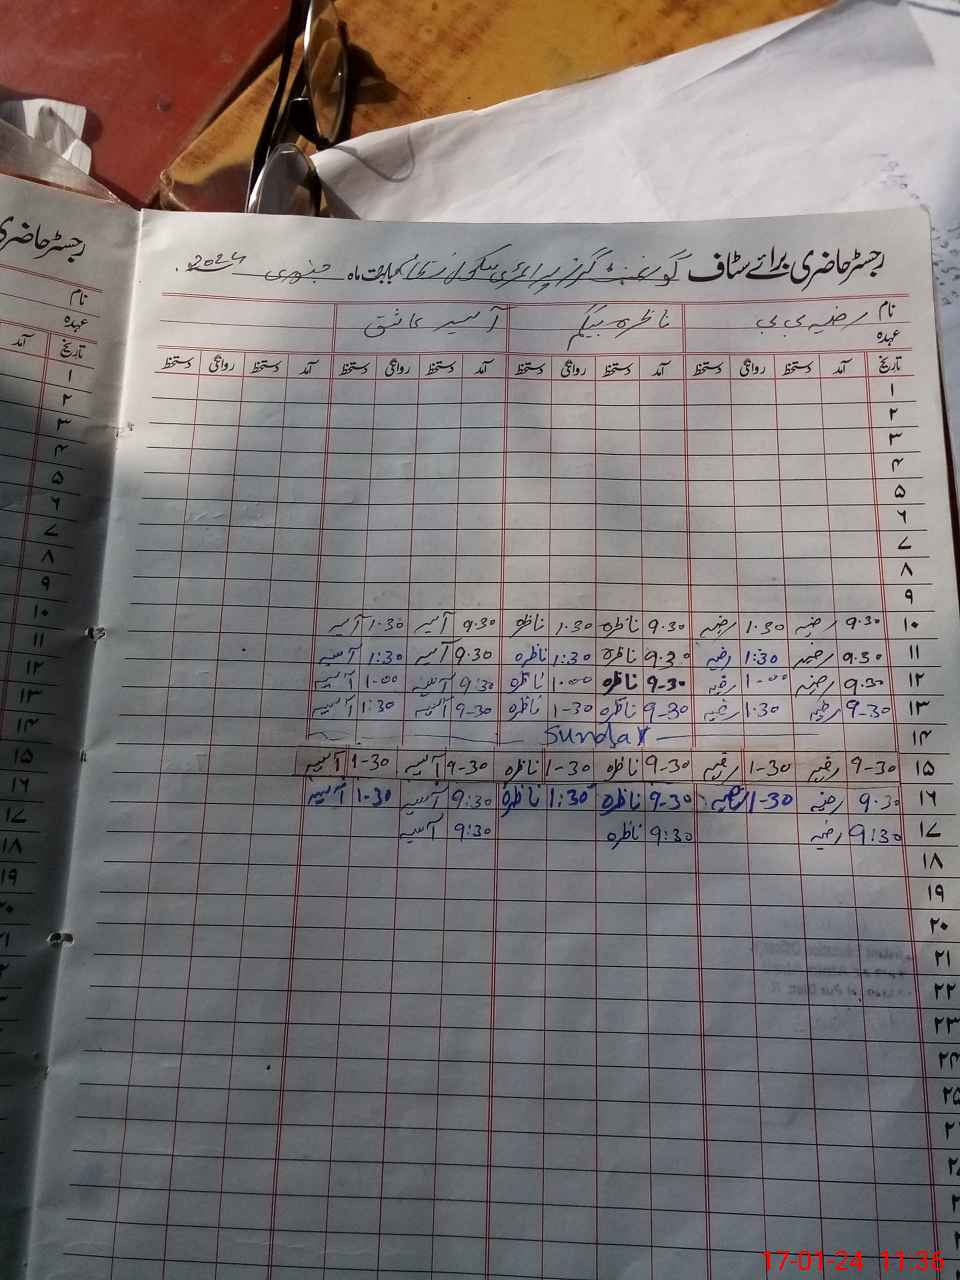 رجسٹر حاضری برائے سٹاف گورنمنٹ گرلز پرائمری سکول بابت ماہ جنوری 2024
رجسٹر حاضری
نام رضیہ بی بی ناظرہ بیگم آسیہ عاشق
عہدہ
تاریخ آمد دستخط روانگی دستخط آمد دستخط روانگی دستخط آمد دستخط روانگی دستخط آمد دستخط روانگی دستخط
۱
۲
۳
۴
۵
۶
۷
۸
۹
۱۰ 9.30 رضیہ 1.30 رضیہ 9.30 ناظرہ 1.30 ناظرہ 9.30 آسیہ 1.30 آسیہ
۱۱ 9.30 رضیہ 1:30 رضیہ 9.30 ناظرہ 1:30 ناظرہ 9.30 آسیہ 1:30 آسیہ
۱۲ 9.30 رضیہ 1-00 رضیہ 9-30 ناظرہ 1.00 ناظرہ 9:30 آسیہ 1.00 آسیہ
۱۳ 9-30 رضیہ 1.30 رضیہ 9-30 ناظرہ 1-30 ناظرہ 9-30 آسیہ 1:30 آسیہ
۱۴ Sunday
۱۵ 9-30 رضیہ 1-30 رضیہ 9-30 ناظرہ 1-30 ناظرہ 9-30 آسیہ 1-30 آسیہ
۱۶ 9.30 رضیہ 1-30 رضیہ 9-30 ناظرہ 1:30 ناظرہ 9:30 آسیہ 1-30 آسیہ
۱۷ 9:30 رضیہ 9:30 ناظرہ 9:30 آسیہ
۱۸
۱۹
۲۰
۲۱
۲۲
۲۳
۲۴
۲۵
نام
عہدہ
تاریخ آمد
۱
۲
۳
۴
۵
۶
۷
۸
۹
۱۰
۱۱
۱۲
۱۳
۱۴
۱۵
۱۶
۱۷
۱۸
۱۹
۲۰
۲۱
17-01-24 11:36